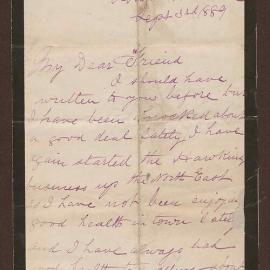 Sept 3rd 1889
My Dear Friend
I should have
written to you before but
I have been knocked about
a good deal lately, I have
again started the Hawking
business up the North East
as I have not been enjoying
good health in town late
and I have always had
good health